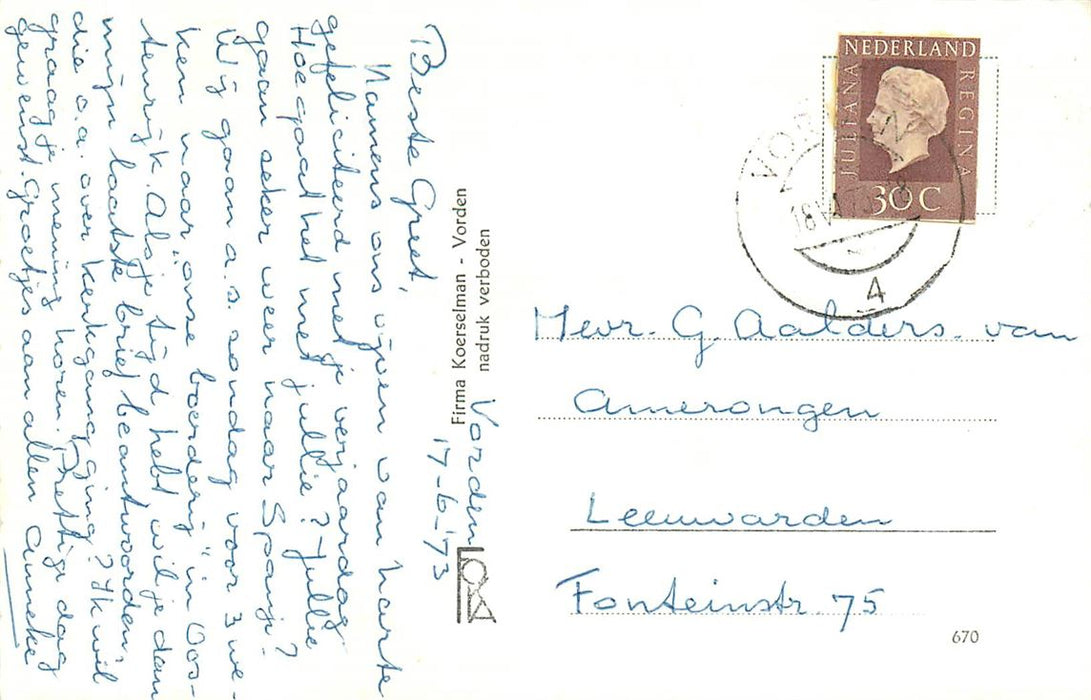 Vorden
17-6-'73
Beste Greet,
Namens ons vijven van harte
gefeliciteerd met je verjaardag.
Hoe gaat het met jullie? Jullie
gaan zeker weer naar Spanje?
Wij gaan a.s. zondag voor 3 we-
ken naar "onze boerderij" in Oos-
tenrijk. Als je tijd hebt wil je dan
mijn laatste brief beantwoorden,
die o.a. over kerkgang ging? Ik wil
graag je mening horen. Prettige dag
gewenst. Groetjes aan allen Anneke
Firma Koerselman - Vorden
nadruk verboden
FOKA
NEDERLAND
JULIANA
REGINA
30 C
VOR
N
4
Mevr. G. Aalders. van
Amerongen
Leeuwarden
Fonteinstr. 75
670